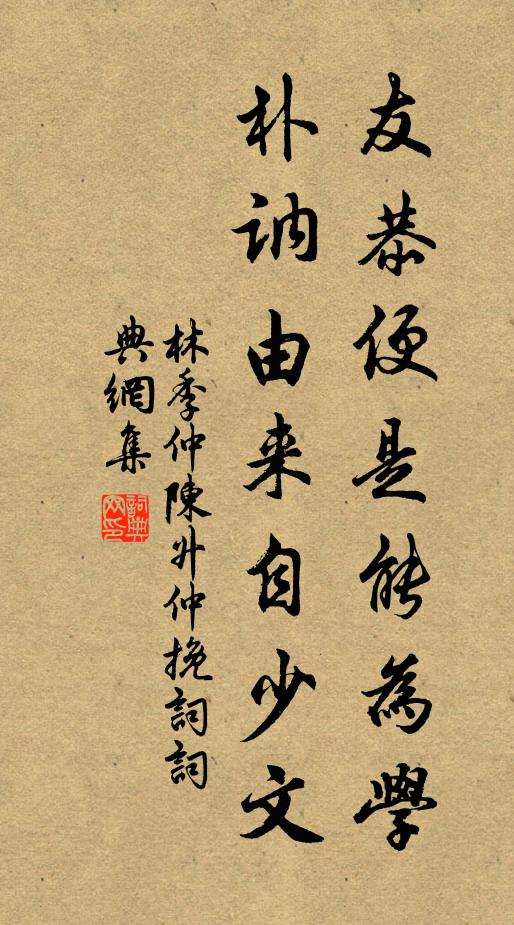 友恭便是能為學
朴訥由来自少文
林季仲陳升仲挽詞詞
典網集
詞典網印